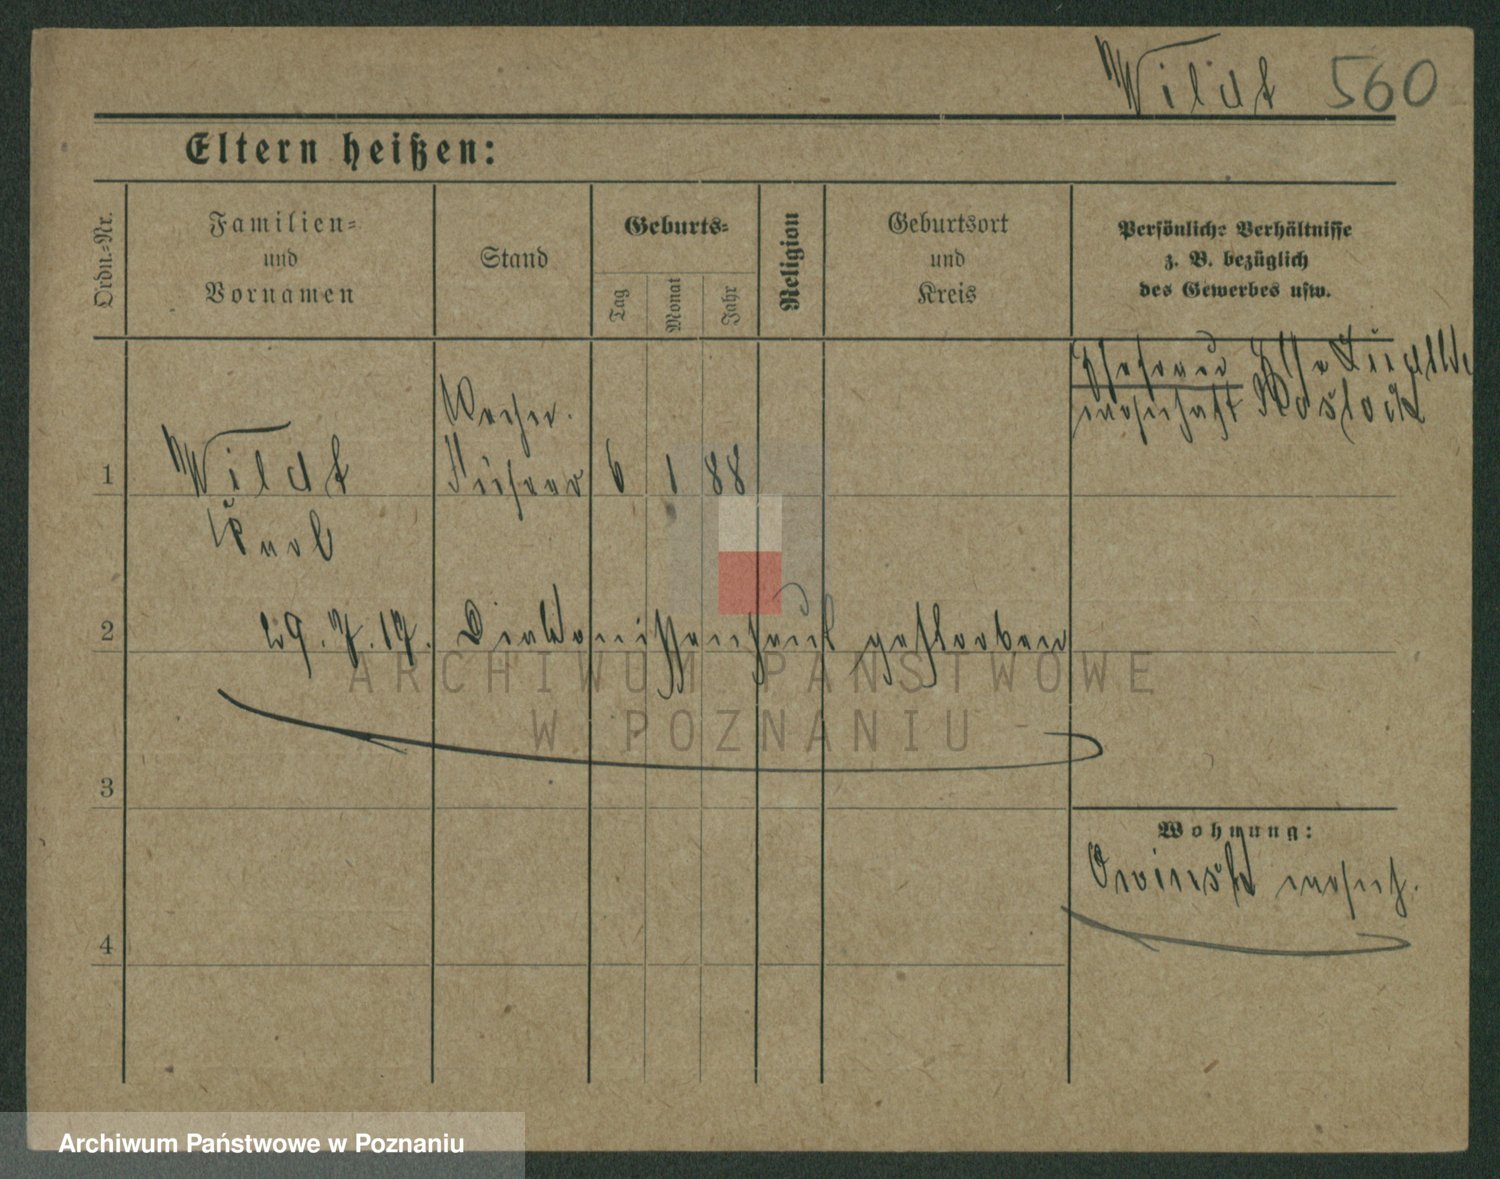 Wildt 560
Eltern heißen:
Ordn.-Nr.
Familien-
und
Vornamen
Stand
Geburts-
Tag
Monat
Jahr
Religion
Geburtsort
und
Kreis
Persönliche Verhältnisse
z. B. bezüglich
des Gewerbes usw.
Ehefrau Else
wohnhaft Rostock
1
Wildt
Karl
Führer
6 1 88
2
29. 7. 17. Diakonissenhaus gestorben
3
4
Wohnung:
Owinsk wohnh.
ARCHIWUM PAŃSTWOWE
W POZNANIU
Archiwum Państwowe w Poznaniu